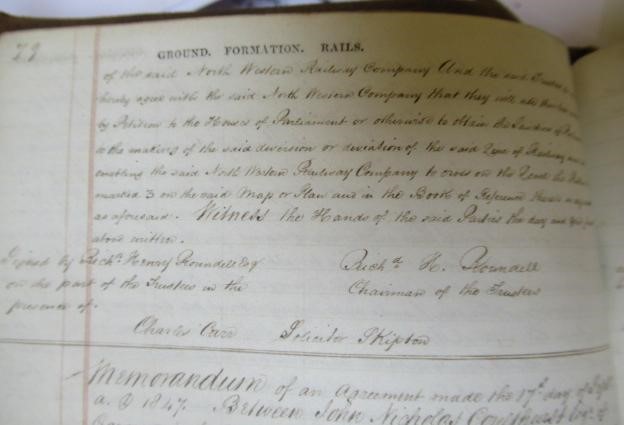 29
GROUND. FORMATION. RAILS.
of the said North Western Railway Company And the said Trustees
hereby agree with the said North Western Company that they will
by Petition to the Houses of Parliament or otherwise to obtain the Sanction of
to the making of the said diversion or deviation of the said Line of Railway
enabling the said North Western Railway Company to cross on the Level the
marked 3 on the said Map or Plan and in the Book of Reference
as aforesaid. Witness the Hands of the said Parties the day and
above written.
Signed by Richd. Henry Roundell Esq
on the part of the Trustees in the
presence of.
Richd. H. Roundell
Chairman of the Trustees
Charles Carr Solicitor Skipton
Memorandum of an Agreement made the 17th day of
a. D 1847. Between John Nicholas Coulthurst Esqr. of